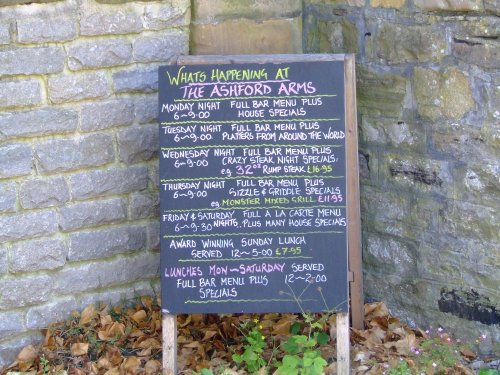 WHATS HAPPENING AT
THE ASHFORD ARMS
MONDAY NIGHT FULL BAR MENU PLUS
6-9.00 HOUSE SPECIALS
TUESDAY NIGHT FULL BAR MENU PLUS
6-9.00 PLATTERS FROM AROUND THE WORLD
WEDNESDAY NIGHT FULL BAR MENU PLUS
6-9.00 CRAZY STEAK NIGHT SPECIALS,
e.g. 32oz RUMP STEAK £16.95
THURSDAY NIGHT FULL BAR MENU PLUS
6-9.00 SIZZLE & GRIDDLE SPECIALS
eg. MONSTER MIXED GRILL £11.95
FRIDAY & SATURDAY FULL A LA CARTE MENU
6-9.30 NIGHTS. PLUS MANY HOUSE SPECIALS
AWARD WINNING SUNDAY LUNCH
SERVED 12-5.00 £7.95
LUNCHES MON-SATURDAY SERVED
FULL BAR MENU PLUS 12-2.00
SPECIALS